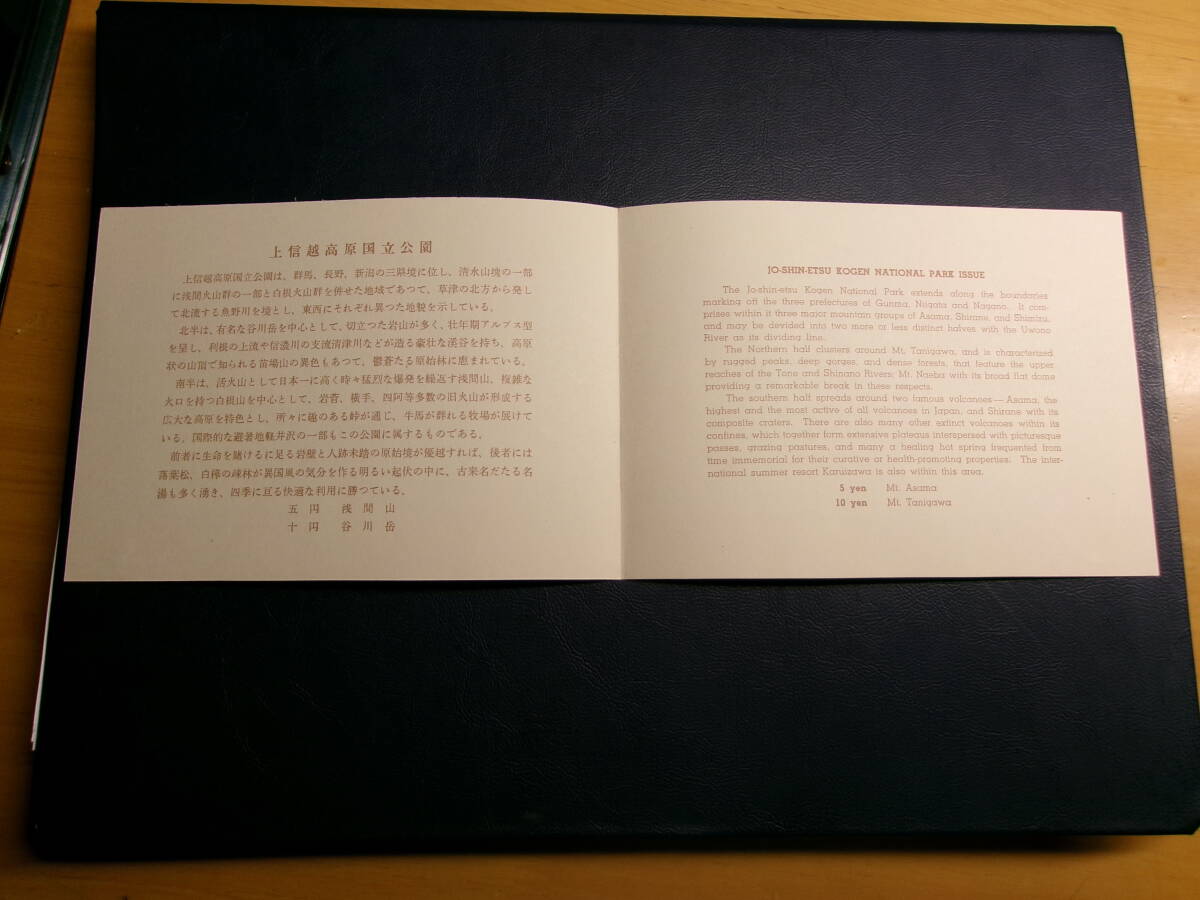 上信越高原国立公園
上信越高原国立公園は、群馬、長野、新潟の三県境に位し、清水山塊の一部
に浅間火山群の一部と白根火山群を併せた地域であつて、草津の北方から発し
て北流する魚野川を境とし、東西にそれぞれ異つた地貌を示している。
北半は、有名な谷川岳を中心として、切立つた岩山が多く、壮年期アルプス型
を呈し、利根の上流や信濃川の支流清津川などが造る豪壮な渓谷を持ち、高原
状の山頂で知られる苗場山の異色もあつて、鬱蒼たる原始林に恵まれている。
南半は、活火山として日本一に高く時々猛烈な爆発を繰返す浅間山、複雑な
火口を持つ白根山を中心として、岩菅、横手、四阿等多数の旧火山が形成する
広大な高原を特色とし、所々に趣のある峠が通じ、牛馬が群れる牧場が展けて
いる。国際的な避暑地軽井沢の一部もこの公園に属するものである。
前者に生命を賭けるに足る岩壁と人跡未踏の原始境が優越すれば、後者には
落葉松、白樺の疎林が異国風の気分を作る明るい起伏の中に、古来名だたる名
湯も多く湧き、四季に亘る快適な利用に勝つている。
五円 浅間山
十円 谷川岳
JO-SHIN-ETSU KOGEN NATIONAL PARK ISSUE
The Jo-shin-etsu Kogen National Park extends along the boundaries
marking off the three prefectures of Gunma, Niigata and Nagano. It com-
prises within it three major mountain groups of Asama, Shirane, and Shimizu,
and may be devided into two more or less distinct halves with the Uwono
River as its dividing line.
The Northern half clusters around Mt. Tanigawa, and is characterized
by rugged peaks, deep gorges, and dense forests, that feature the upper
reaches of the Tone and Shinano Rivers; Mt. Naeba with its broad flat dome
providing a remarkable break in these respects.
The southern half spreads around two famous volcanoes—Asama, the
highest and the most active of all volcanoes in Japan, and Shirane with its
composite craters. There are also many other extinct volcanoes within its
confines, which together form extensive plateaus interspersed with picturesque
passes, grazing pastures, and many a healing hot spring frequented from
time immemorial for their curative or health-promoting properties. The inter-
national summer resort Karuizawa is also within this area.
5 yen Mt. Asama
10 yen Mt. Tanigawa